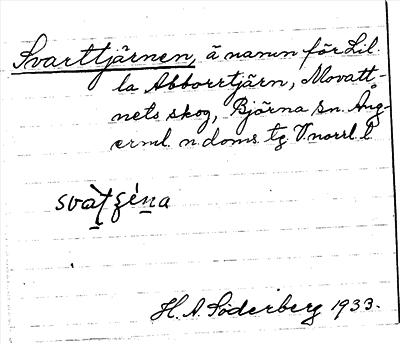 Svarttjärnen, ä namn för Lil
la Abborrtjärn, Movatt-
nets skog, Björna sn. Ång-
erml. n doms tg V norrl. l
svat
H. A. Söderberg 1933.